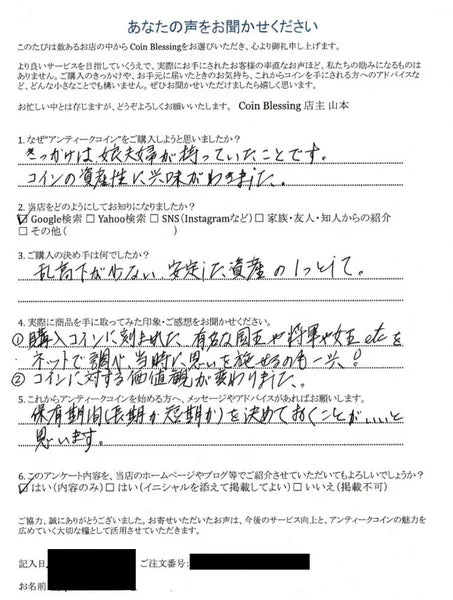 あなたの声をお聞かせください
このたびは数あるお店の中から Coin Blessingをお選びいただき、心より御礼申し上げます。
より良いサービスを目指していくうえで、実際にお手にされたお客様の率直なお声ほど、私たちの励みになるものは
ありません。ご購入のきっかけや、お手元に届いたときのお気持ち、これからコインを手にされる方へのアドバイスな
ど、どんな小さなことでも構いません。ぜひお聞かせいただけましたら嬉しく思います。
お忙しい中とは存じますが、どうぞよろしくお願いいたします。 Coin Blessing 店主 山本
1. なぜ"アンティークコイン"をご購入しようと思いましたか？
きっかけは娘夫婦が持っていたことです。
コインの資産性に興味がわきました。
2. 当店をどのようにしてお知りになりましたか？
☑ Google検索 □ Yahoo検索 □ SNS（Instagramなど）□ 家族・友人・知人からの紹介
□ その他（ ）
3. ご購入の決め手は何でしたか？
乱高下が少ない安定した資産の1つとして。
4. 実際に商品を手に取ってみた印象・ご感想をお聞かせください。
① 購入コインに刻まれた有名な国王や将軍や女王etcを
ネットで調べ当時に思いを馳せるのも一興！
② コインに対する価値観が変わりました。
5. これからアンティークコインを始める方へ、メッセージやアドバイスがあればお願いします。
保有期間（長期か短期か）を決めておくことがいいと
思います。
6. このアンケート内容を、当店のホームページやブログ等でご紹介させていただいてもよろしいでしょうか？
☑ はい（内容のみ）□ はい（イニシャルを添えて掲載してよい）□ いいえ（掲載不可）
ご協力、誠にありがとうございました。お寄せいただいたお声は、今後のサービス向上と、アンティークコインの魅力を
広めていく大切な糧として活用させていただきます。
記入日 ご注文番号:
お名前